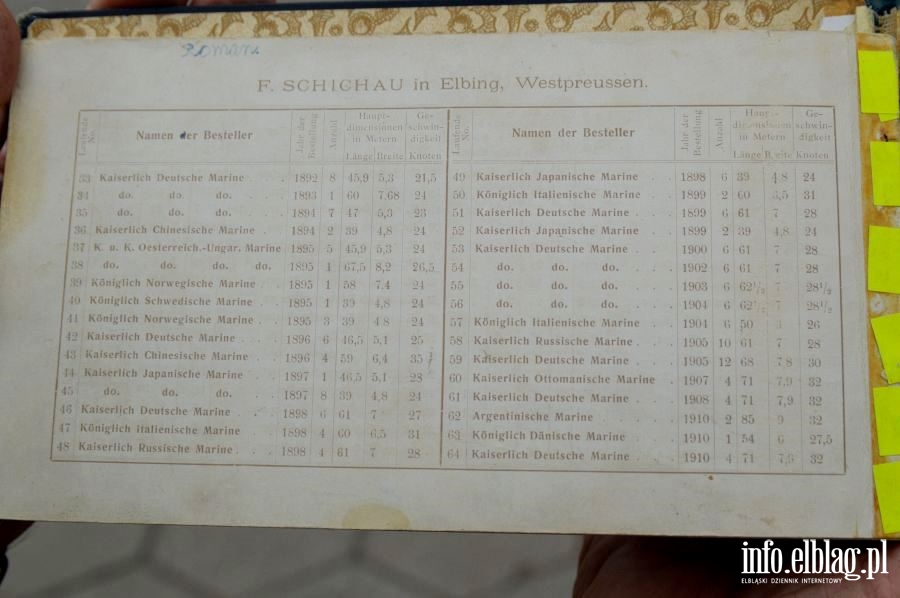 Romans
F. SCHICHAU in Elbing, Westpreussen.
Laufende No. Namen der Besteller Jahr der Bestellung Anzahl Haupt-dimensionen in Metern Länge Breite Ge-schwin-digkeit Knoten
33 Kaiserlich Deutsche Marine 1892 8 45,9 5,3 21,5
34 do. do. do. 1893 1 60 7,68 24
35 do. do. do. 1894 7 47 5,3 23
36 Kaiserlich Chinesische Marine 1894 2 39 4,8 24
37 K. u. K. Oesterreich.-Ungar. Marine 1895 5 45,9 5,3 24
38 do. do. do. do. 1895 1 67,5 8,2 26,5
39 Königlich Norwegische Marine 1895 1 58 7,4 24
40 Königlich Schwedische Marine 1895 1 39 4,8 24
41 Königlich Norwegische Marine 1895 3 39 4 8 24
42 Kaiserlich Deutsche Marine 1896 6 46,5 5,1 25
43 Kaiserlich Chinesische Marine 1896 4 59 6,4 35
44 Kaiserlich Japanische Marine 1897 1 46,5 5,1 28
45 do. do. do. 1897 8 39 4,8 24
46 Kaiserlich Deutsche Marine 1898 6 61 7 27
47 Königlich Italienische Marine 1898 4 60 6,5 31
48 Kaiserlich Russische Marine 1898 4 61 7 28
Laufende No. Namen der Besteller Jahr der Bestellung Anzahl Haupt-dimensionen in Metern Länge Breite Ge-schwin-digkeit Knoten
49 Kaiserlich Japanische Marine 1898 6 39 4,8 24
50 Königlich Italienische Marine 1899 2 60 31
51 Kaiserlich Deutsche Marine 1899 6 61 7 28
52 Kaiserlich Japanische Marine 1899 2 39 4,8 24
53 Kaiserlich Deutsche Marine 1900 6 61 7 28
54 do. do. do. 1902 6 61 7 28
55 do. do. do. 1903 6 62 1/2 7 28 1/2
56 do. do. do. 1904 6 62 1/2 7 28 1/2
57 Königlich Italienische Marine 1904 6 50 26
58 Kaiserlich Russische Marine 1905 10 61 7 28
59 Kaiserlich Deutsche Marine 1905 12 68 7 8 30
60 Kaiserlich Ottomanische Marine 1907 4 71 7,9 32
61 Kaiserlich Deutsche Marine 1908 4 71 7,9 32
62 Argentinische Marine 1910 2 85 9 32
63 Königlich Dänische Marine 1910 1 54 6 27,5
64 Kaiserlich Deutsche Marine 1910 4 71 7,9 32
info.elblag.pl
ELBLĄSKI DZIENNIK INTERNETOWY